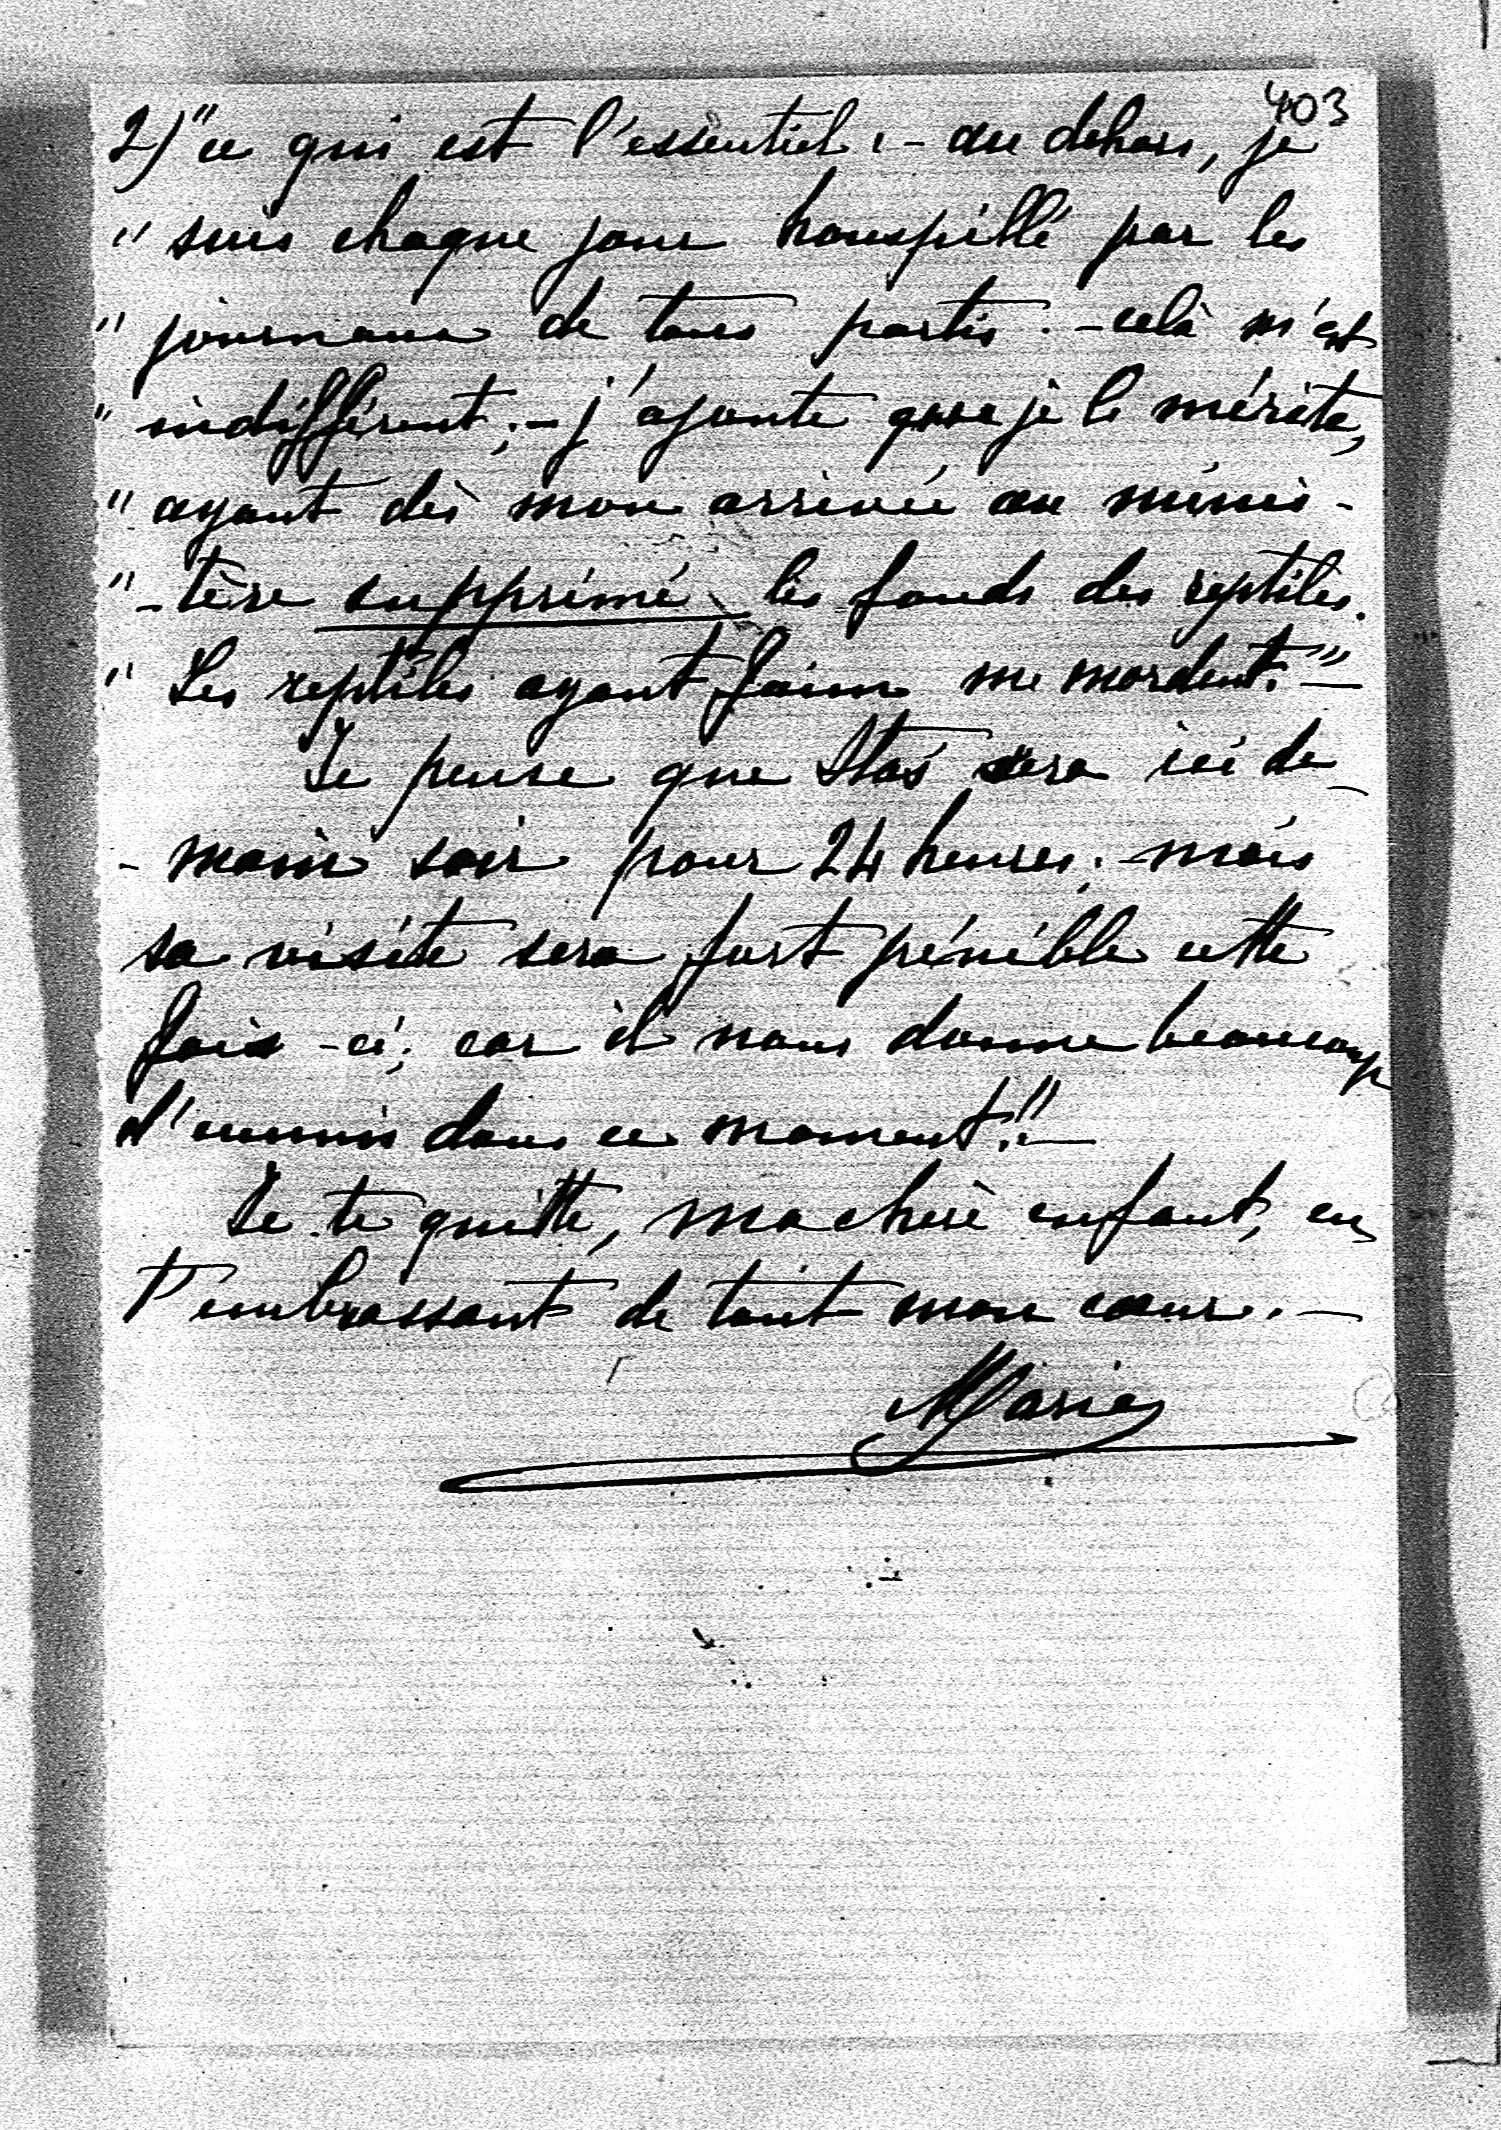 403
2) "ce qui est l'essentiel : - au dehors, je
" suis chaque jour houspillé par les
" journaux de tous partis. - celà m'est
" indifférent ; - j'ajoute que je le mérite,
" ayant dès mon arrivée au minis-
" -tère supprimé les fonds des reptiles.
" Les reptiles ayant faim me mordent." —
Je pense que Stas sera ici de-
- main soir pour 24 heures ; - mais
sa visite sera fort pénible cette
fois-ci ; car il nous donne beaucoup
d'ennuis dans ce moment !! —
Je te quitte, ma chère enfant, en
t'embrassant de tout mon cœur. —
Marie